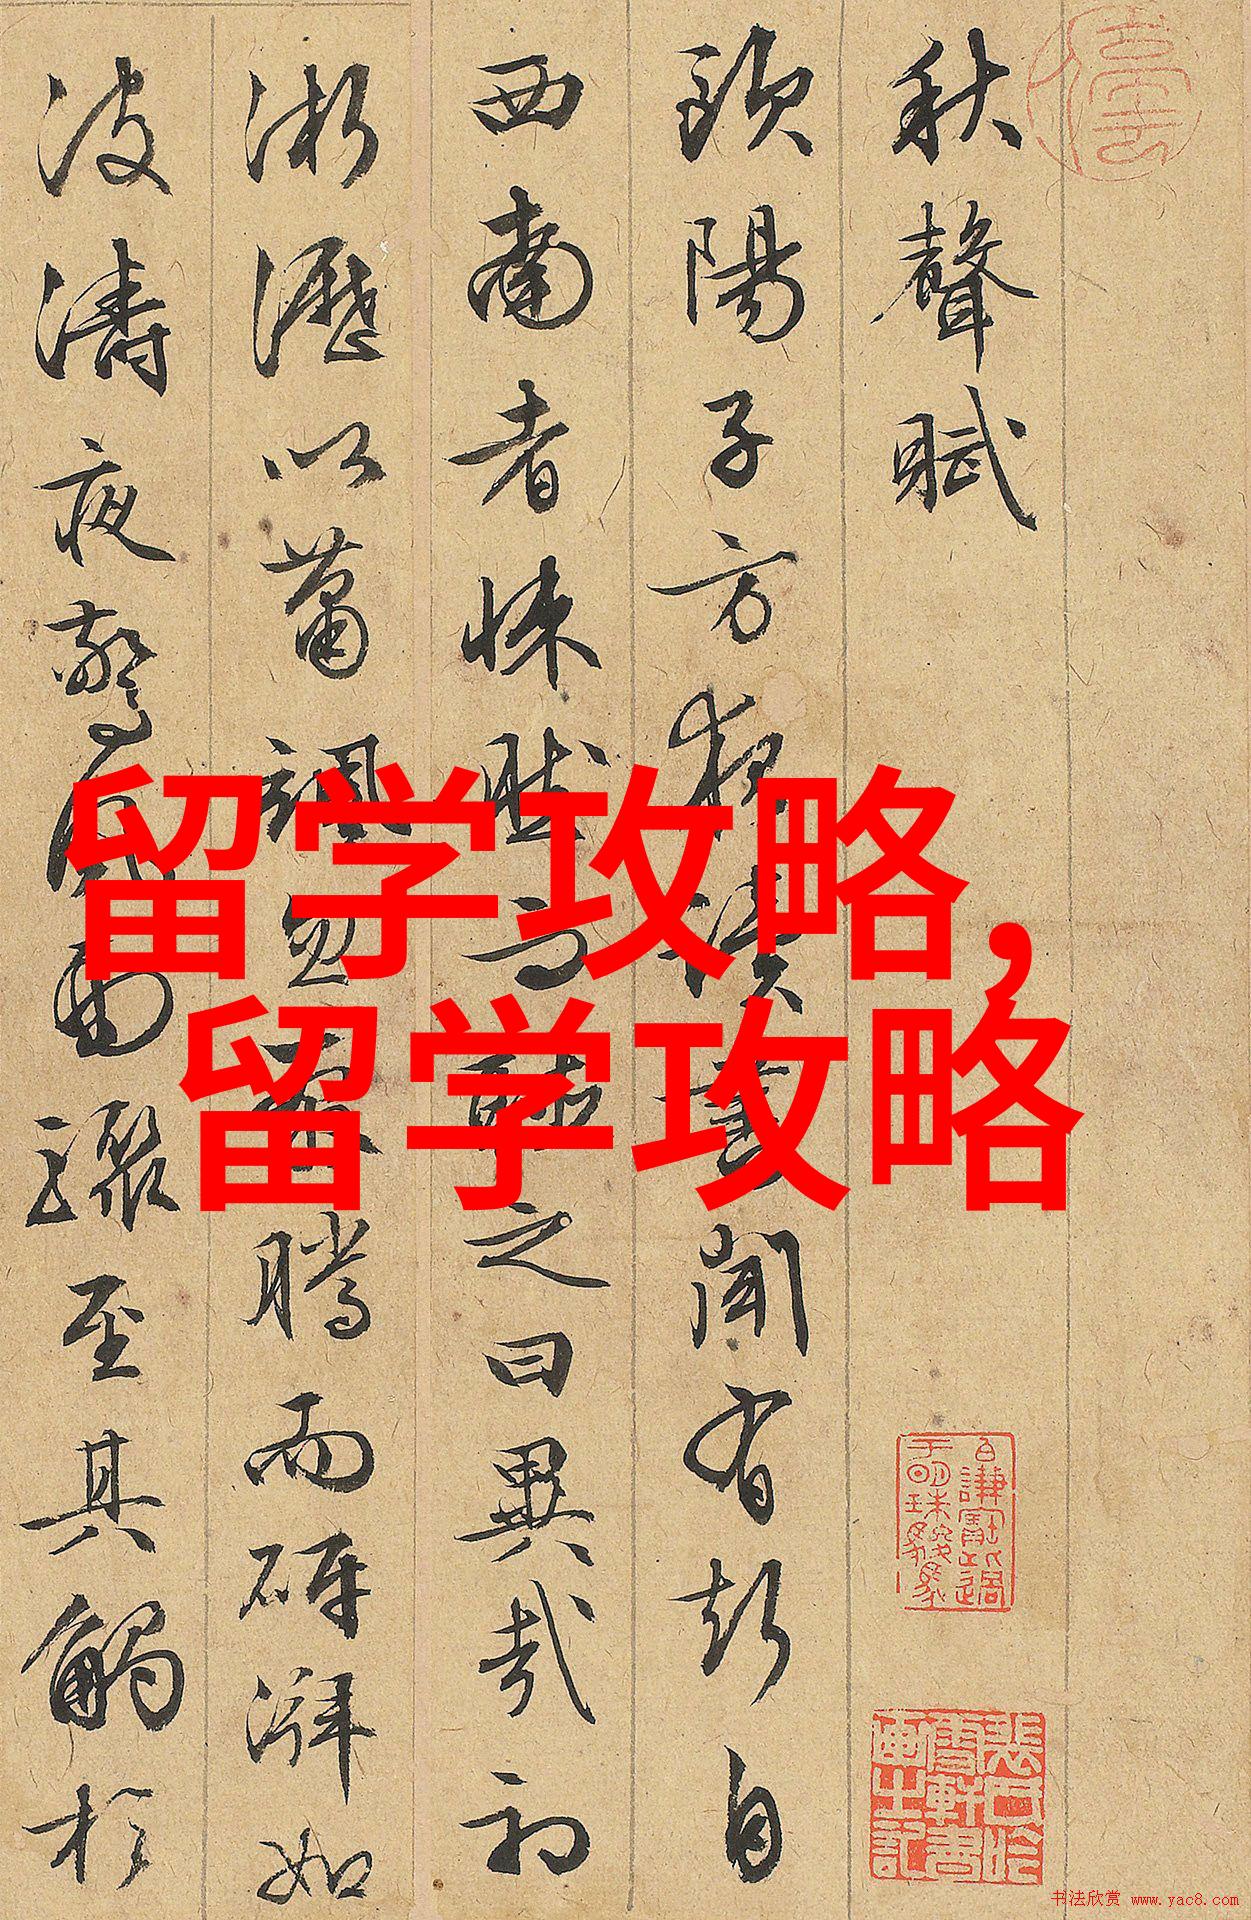 秋聲賦
歐陽子方夜讀書聞有聲自
西南者悚然而聽之曰異哉初
淅瀝以蕭颯忽奔騰而砰湃如
波濤夜驚風雨驟至其觸於
留学攻略，
留学攻略
书法欣赏 www.yac8.com